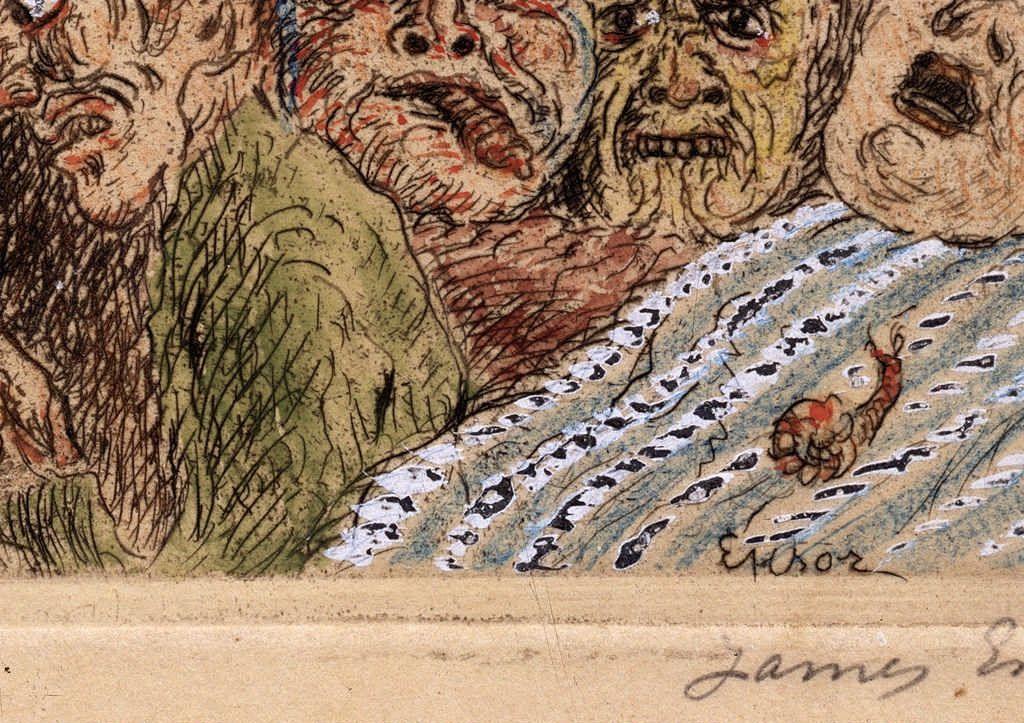 Ensor
James En